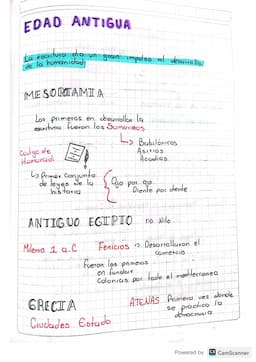 EDAD ANTIGUA
La escritura dio un gran impulso al desarrollo
de la humanidad
MESOPTAMIA
Los primeros en desarrollar la
escritura fueron los Sumerios
Babilónicos
Asirios
Acadios
Código de
Hamurabi
Primer conjunto
de leyes de la
historia
Ojo por ojo
Diente por diente
ANTIGUO EGIPTO río Nilo
Milenio 1 a.C Fenicios → Desarrollaron el
comercio
Fueron los primeros
en fundar
Colonias por todo el mediterraneo
GRECIA
Ciudades Estado
ATENAS Primera vez donde
se practico la
democracia
Powered by CS CamScanner